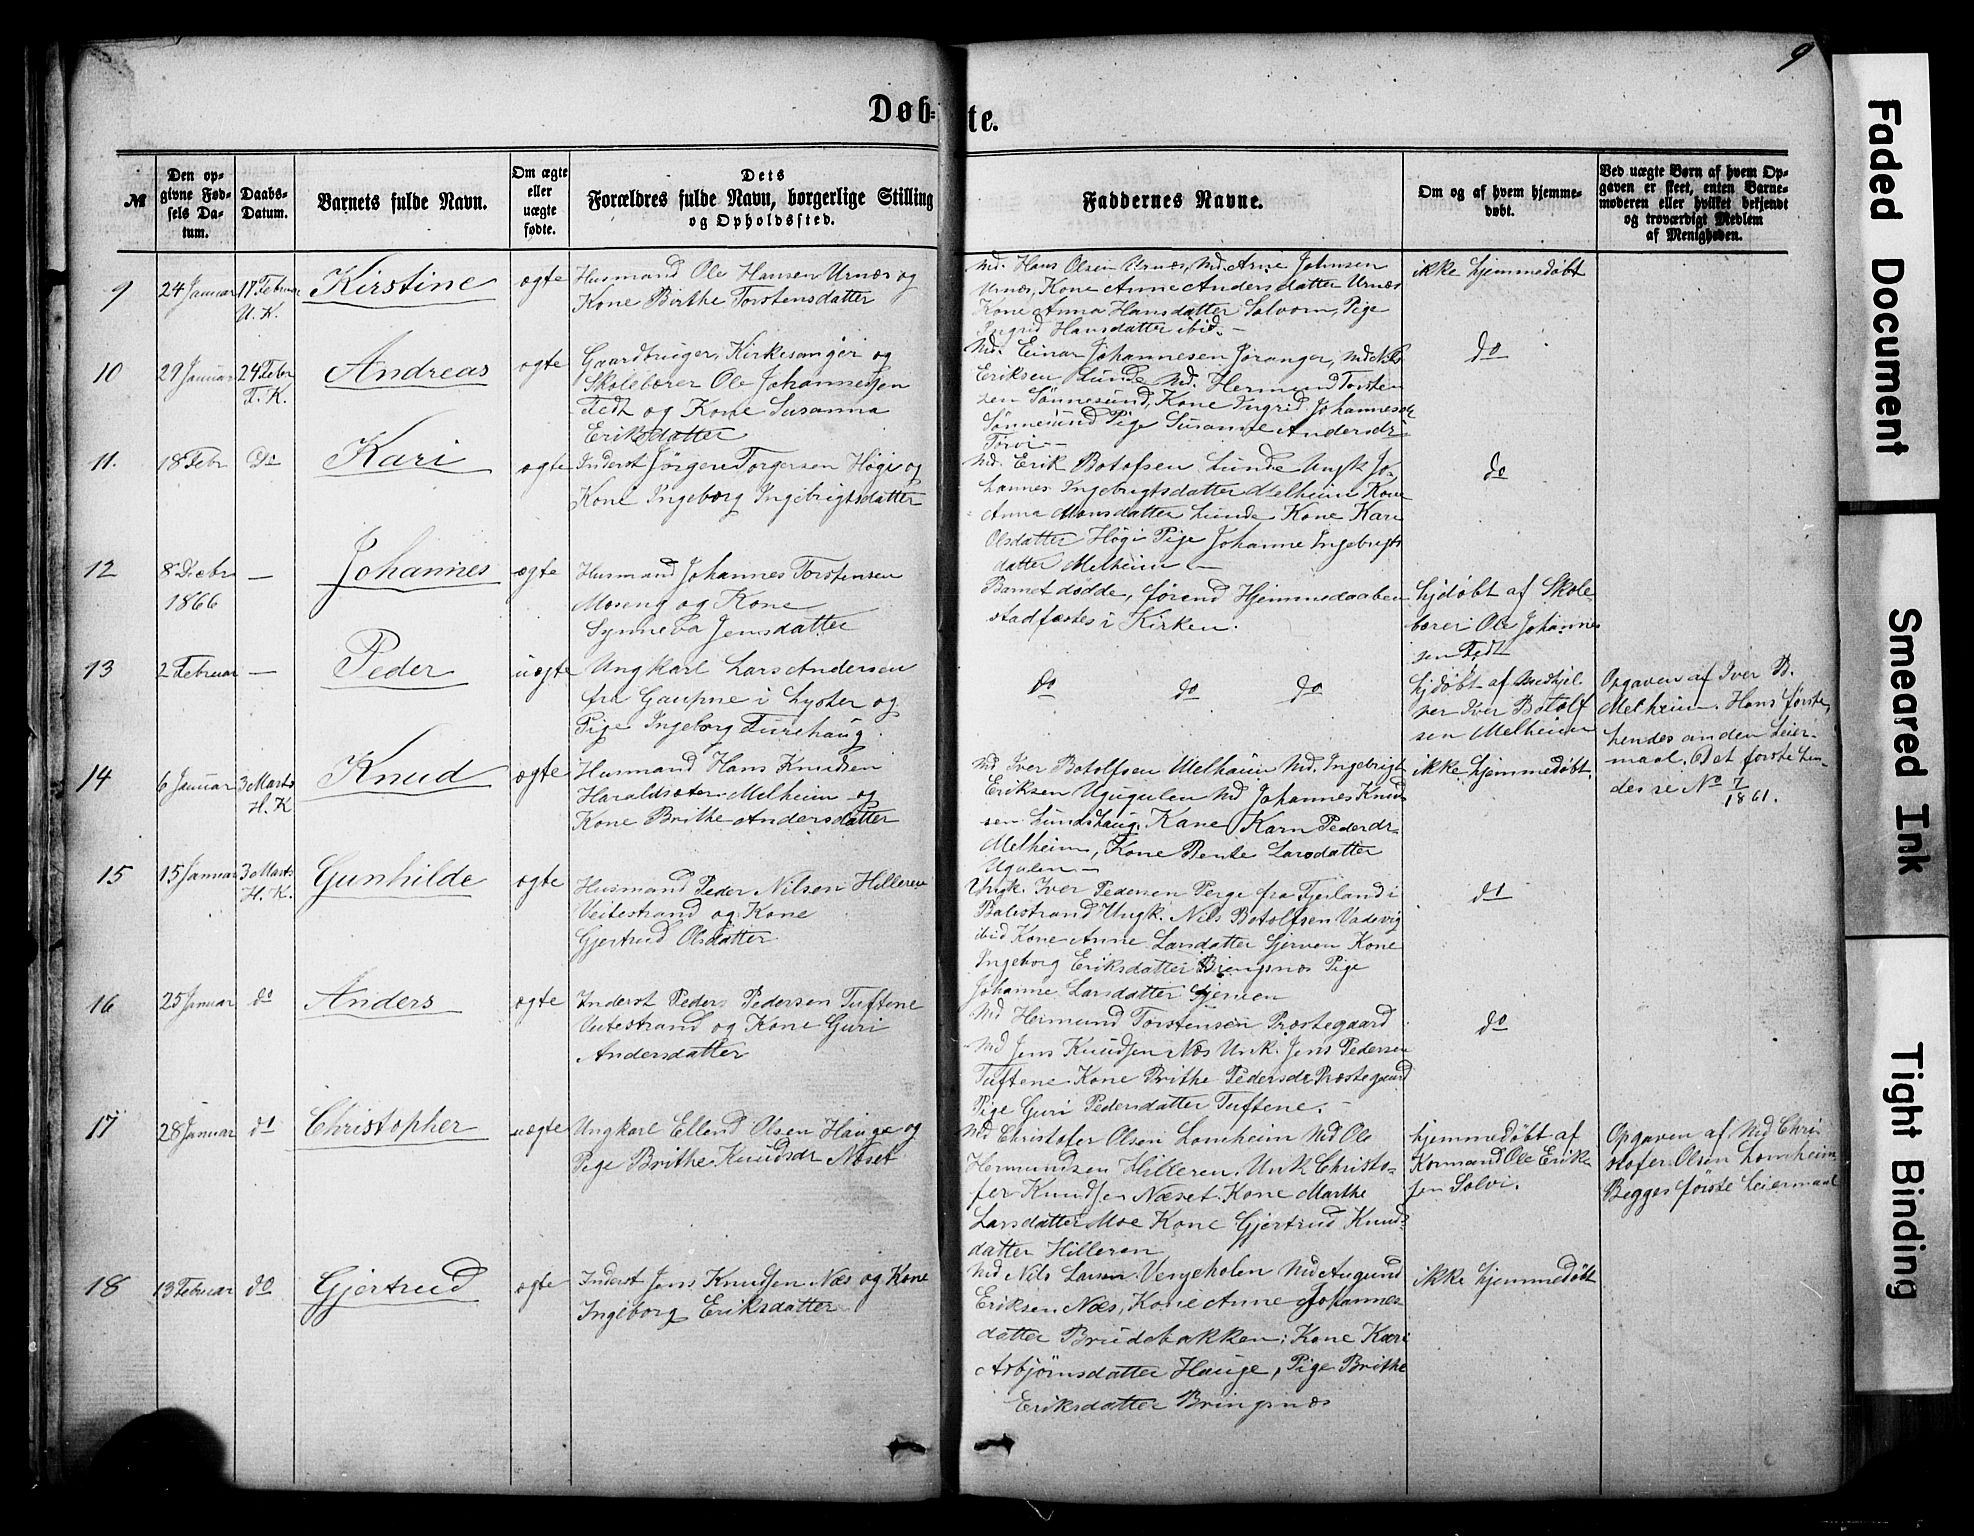 9
Døb-
te.
№
Den op-
givne Fød-
sels Da-
tum.
Daabs-
Datum.
Barnets fulde Navn.
Om ægte
eller
uægte
fødte.
Dets
Forældres fulde Navn, borgerlige Stilling
og Opholdssted.
Faddernes Navne.
Om og af hvem hjemme-
døbt.
Ved uægte Børn af hvem Op-
gaven er skeet, enten Barne-
moderen eller hvilket bekjendt
og troværdigt Medlem
af Menigheden.
9
24 Januar
17 Februar
U. K.
Kirstine
ægte
Husmand Ole Hansen Urnæs og
Kone Birthe Torstensdatter
Md. Hans Olsen Urnæs, Md. Arne Johnsen
Urnæs, Kone Anne Andersdatter Urnæs
Kone Anna Hansdatter Solvorn, Pige
Ingrid Hansdatter ibid. -
ikke hjemmedøbt
10
29 Januar
24 Febr
F. K.
Andreas
ægte
Gaardbruger, Kirkesanger og
Skolelærer Ole Johannessen
Fedt og Kone Susanna
Eriksdatter
Md. Einar Johannesen Joranger, Md
Eriksen Lunde Md. Hermund Torsten
sen Sønnesund, Kone Ingrid Johannesdr
Sønnesund Pige Susanne Andersdr
do
11.
18 Febr
do
Kari
ægte
Inderst Jørgen Torgersen Høgi og
Kone Ingeborg Ingebrigtsdatter
Md. Erik Botolfsen Lunde Ungk Jo-
hannes Ingebrigtsdatter Melheim Kone
Anna Monsdatter Lunde Kone Kari
Olsdatter Høgi Pige Johanne Ingebrigts
datter Melheim -
do
12
8 Decbr
1866
—
Johannes
ægte
Husmand Johannes Torstensen
Moseng og Kone
Synneva Jensdatter
Barnet dødde, førend Hjemmedaaben
stadfæstes i Kirken.
hjdøbt af Skole-
lærer Ole Johannes
sen Fedt
13
2 Februar
—
Peder
uægte
Ungkarl Lars Andersen
fra Gaupne i Lyster og
Pige Ingeborg Furehaug
do do do
hjdøbt af Medhjel
per Iver Botolf
sen Melheim
Opgaven af Iver B.
Melheim. Hans første,
hendes anden Leier-
maal. Det første hen-
des se No 7/1861.
14
6 Januar
3 Marts
H. K
Knud
ægte
Husmand Hans Knudsen
Haraldsæter Melheim og
Kone Brithe Andersdatter
Md Iver Botolfsen Melheim Md. Ingebrigt
Eriksen Ugugulen Md Johannes Knud
sen Lundshaug. Kone Karn Pederdr
Melheim, Kone Bente Larsdatter
Ugulen -
ikke hjemmedøbt.
15
15 Januar
3 Marts
H. K.
Gunhilde
ægte
Husmand Peder Nilsen Hilleren
Veitestrand og Kone
Gjertrud Olsdatter
Ungk. Iver Pedersen Berge fra Fjerland i
Balestrand Ungk. Nils Botolfsen Vadevig
ibid Kone Anne Larsdatter Gjerven Kone
Ingeborg Eriksdatter Bringsnæs Pige
Johanne Larsdatter Gjerven
do
16
25 Januar
do
Anders
ægte
Inderst Peder Pedersen Tuftene
Veitestrand og Kone Guri
Andersdatter
Md Hermund Torstensen Prostegaard
Md Jens Knudsen Næs Unk. Jens Pedersen
Tuftene Kone Brithe Pedersdr Præstegaard
Pige Guri Pedersdatter Tuftene. -
do
17
28 Januar
do
Christopher
uægte
Ungkarl Ellend Olsen Hauge og
Pige Brithe Knudsdr Næset
Md Christofer Olsen Lomheim Md Ole
Hermundsen Hilleren. Unk Christo-
fer Knudsen Næset. Kone Marthe
Larsdatter Moe Kone Gjertrud Knuds
datter Hilleren
hjemmedøbt af
Kormand Ole Erik
sen Solvi.
Opgaven af Md Chri
stofer Olsen Lomheim
Begges første Leiermaal
18
13 Februar
do
Gjertrud
ægte
Inderst Jens Knudsen Næs og Kone
Ingeborg Eriksdatter
Md Nils Larsen Vergeholen Md Augund
Eriksen Næs, Kone Anne Johannes-
datter Brudebakken; Kone Kari
Asbjørnsdatter Hauge, Pige Brithe
Eriksdatter Bringsnæs
ikke hjemmedøbt
Faded Document
Smeared Ink
Tight Binding